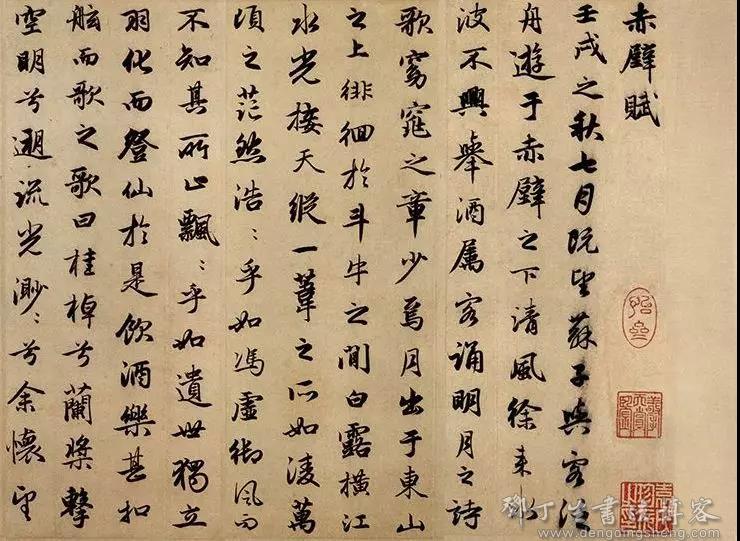 赤壁賦
壬戌之秋七月既望蘇子與客泛
舟遊于赤壁之下清風徐来水
波不興舉酒属客誦明月之詩
歌窈窕之章少焉月出于東山
之上徘徊於斗牛之間白露横江
水光接天縱一葦之所如凌萬
頃之茫然浩〻乎如馮虚御风而
不知其所止飄〻乎如遺世獨立
羽化而登仙於是飲酒樂甚扣
舷而歌之歌曰桂棹兮蘭槳擊
空明兮遡流光渺〻兮余懷望
鄧丁生書法博客
www.dengdingsheng.com